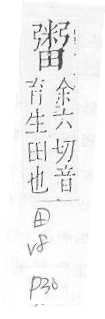 余六切音
育生田也
田
V8
P30